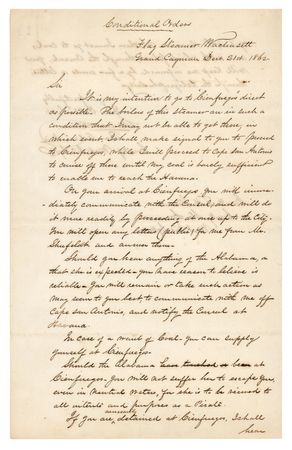 Conditional Orders
Flag Steamer Wachusett
Grand Cayman Dec. 31st. 1862
Sir
It is my intention to go to Cienfuegos direct
as possible. The boilers of this steamer are in such a
condition that I may not be able to get there, in
which event I shall make signal to you to proceed
to Cienfuegos, while I will proceed to Cape San Antonio
to cruise off there until my coal is barely sufficient
to enable me to reach the Havana.
On your arrival at Cienfuegos you will imme-
diately communicate with the Consul, and will do
it more readily by proceeding at once up to the City.
You will open any letters (public) for me from Mr.
Shufeldt and answer them.
Should you hear anything of the Alabama, or
that she is expected - you have reason to believe is
reliable - You will remain or take such action as
may seem to you best to communicate with me off
Cape San Antonio, and notify the Consul at
Havana.
In case of a want of Coal. You can supply
yourself at Cienfuegos.
Should the Alabama have touched or been at
Cienfuegos. You will not suffer her to escape you,
even in Neutral waters, for she is to be viewed to
all intents and purposes as a Pirate.
If you are detained at Cienfuegos, I shall
hear